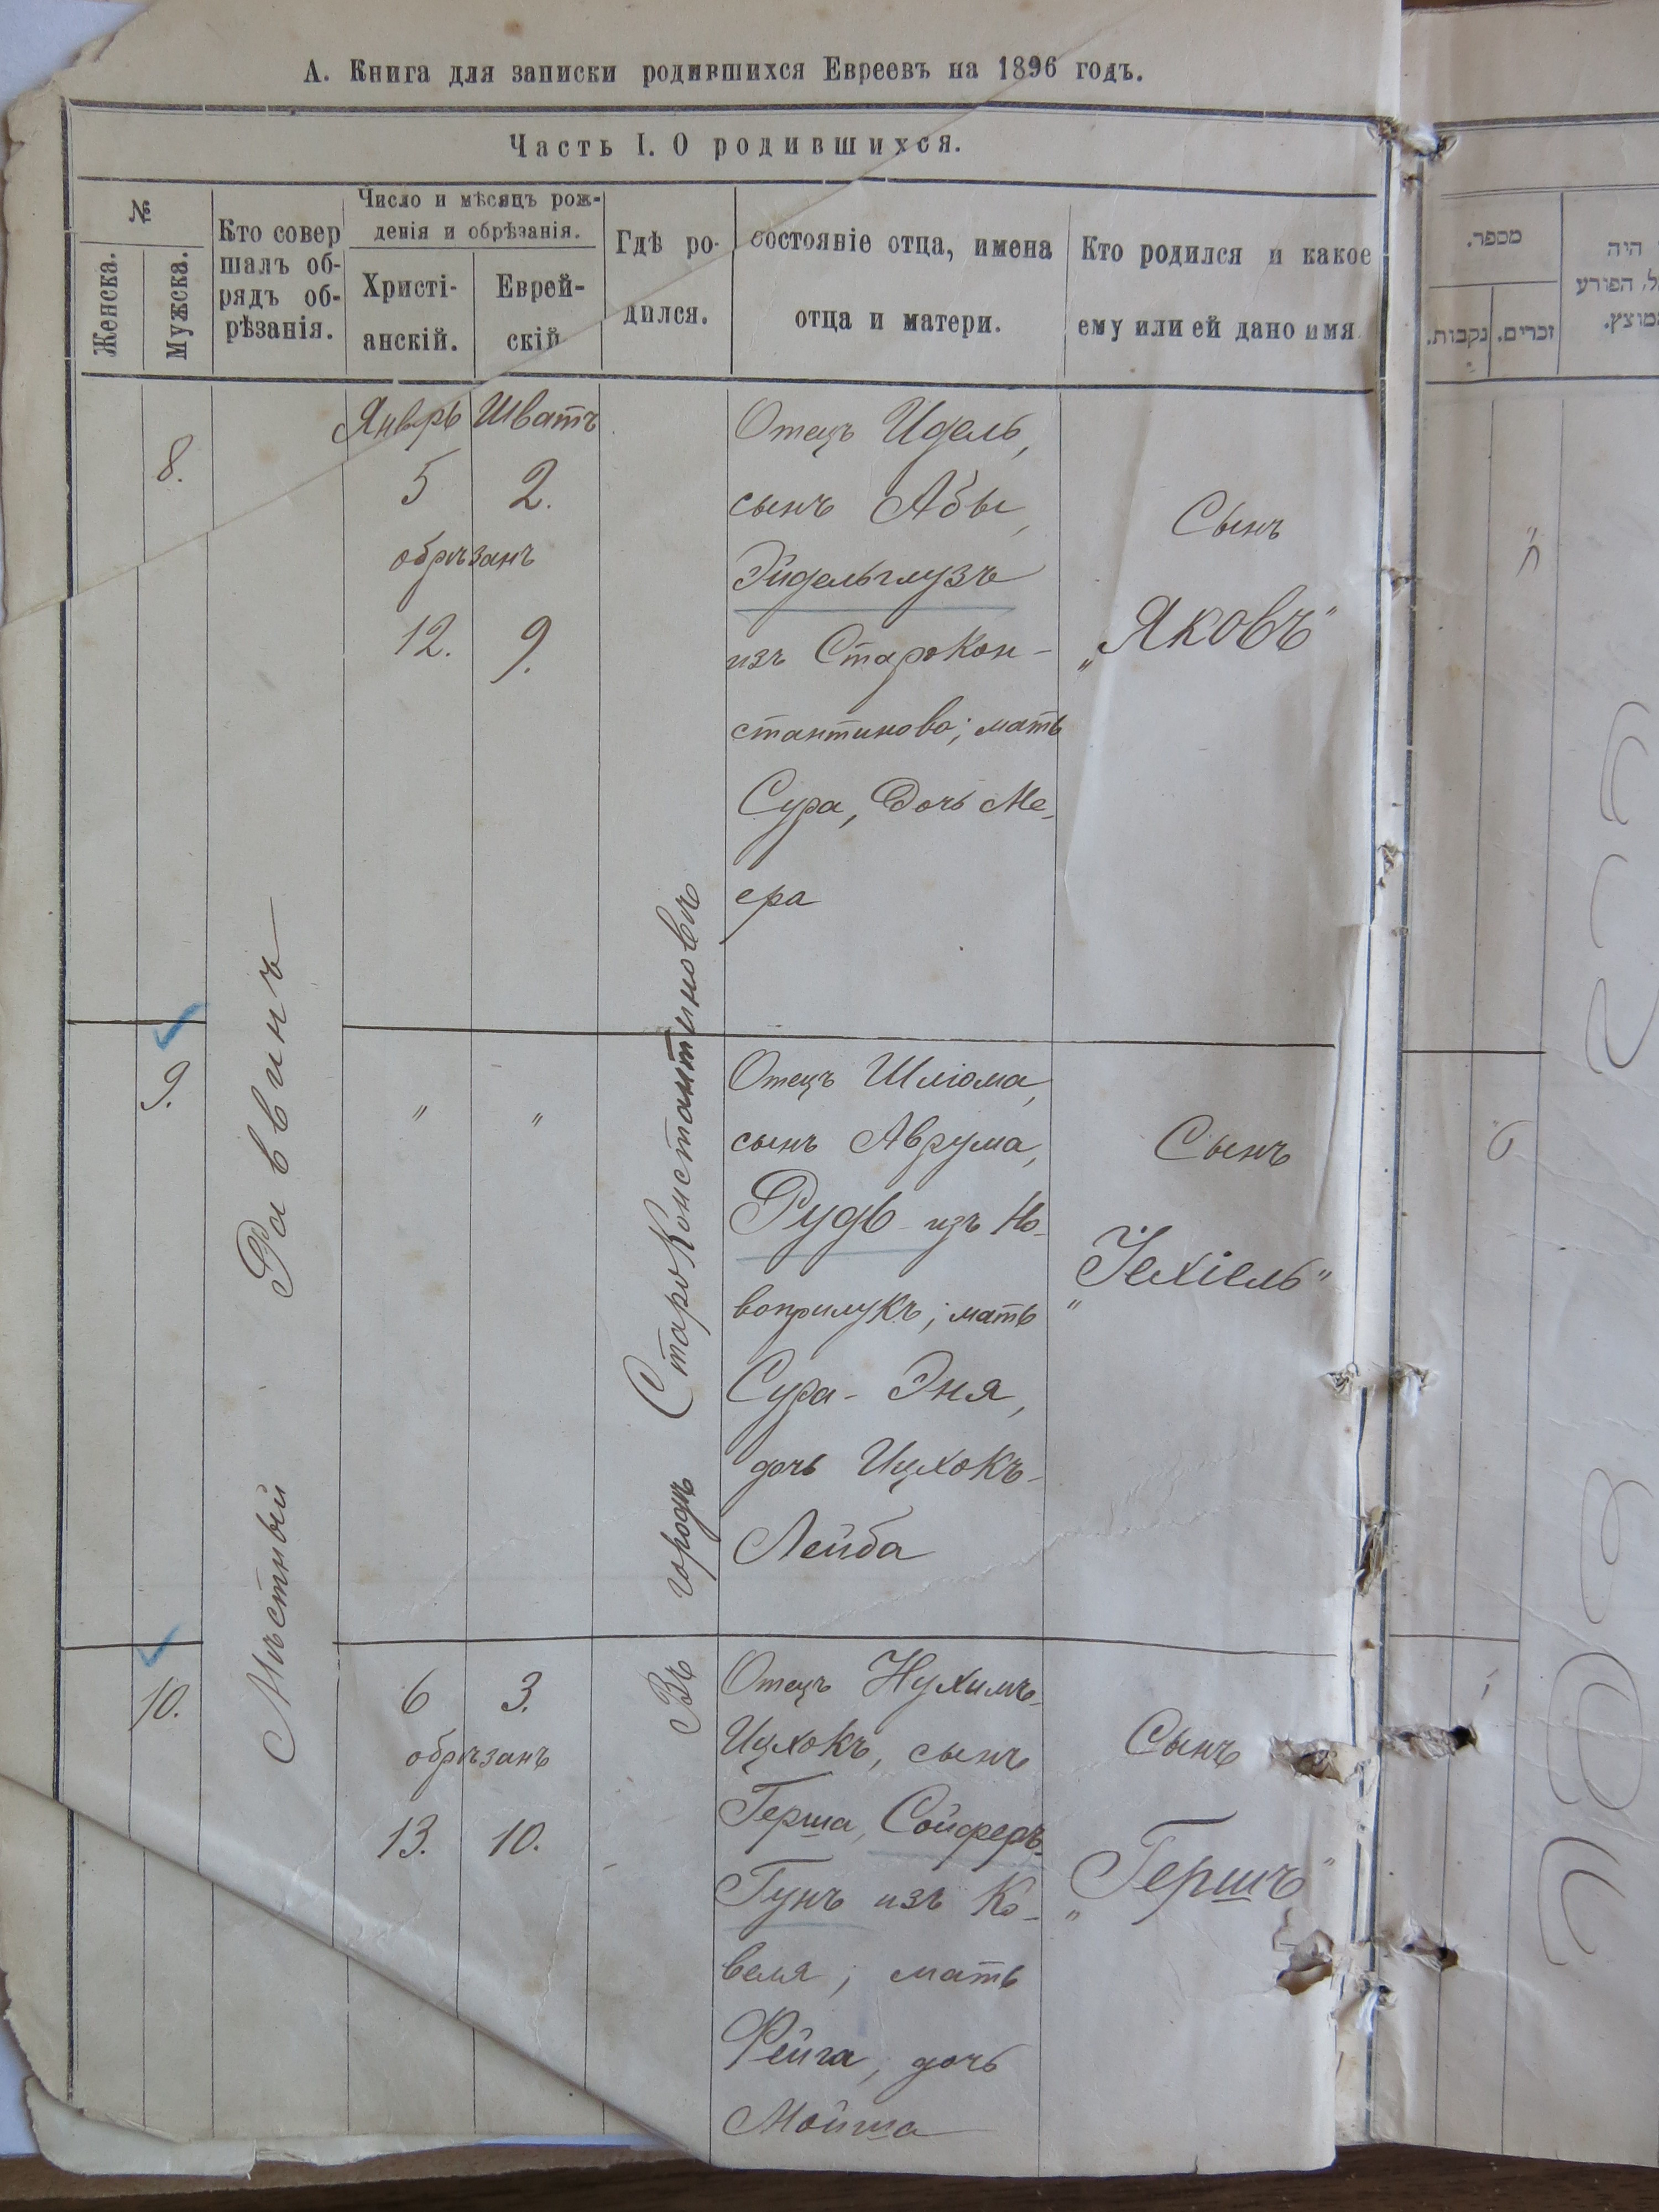 А. Книга для записки родившихся Евреевъ на 1896 годъ.
Часть I. О родившихся.
№
Женска.
Мужска.
Кто совер
шалъ об-
рядъ об-
рѣзанія.
Число и мѣсяцъ рож-
денія и обрѣзанія.
Христі-
анскій.
Еврей-
скій
Гдѣ ро-
дился.
состояніе отца, имена
отца и матери.
Кто родился и какое
ему или ей дано имя
Мѣстный Раввинъ
Въ городѣ СтароКонстантиновѣ
8.
Январь Шватъ
5 2.
обрѣзанъ
12. 9.
Отецъ Идель,
сынъ Абы,
Эйдельглузъ
изъ СтароКон-
стантинова; мать
Сура, дочь Ме-
ера
Сынъ
„Яковъ"
9.
" "
Отецъ Шлюма,
сынъ Аврума,
Рудь изъ Но-
воприлукъ; мать
Сура-Эня,
дочь Ицхокъ-
Лейба
Сынъ
„Іехіель"
10.
6 3.
обрѣзанъ
13. 10.
Отецъ Нухимъ-
Ицхокъ, сынъ
Герша, Сойферъ-
Гунъ изъ Ко-
веля; мать
Фейга, дочь
Мойша
Сынъ
„Гершъ"
מספר.
נקבות.
זכרים.
היה
הפורע
ח
ט
י